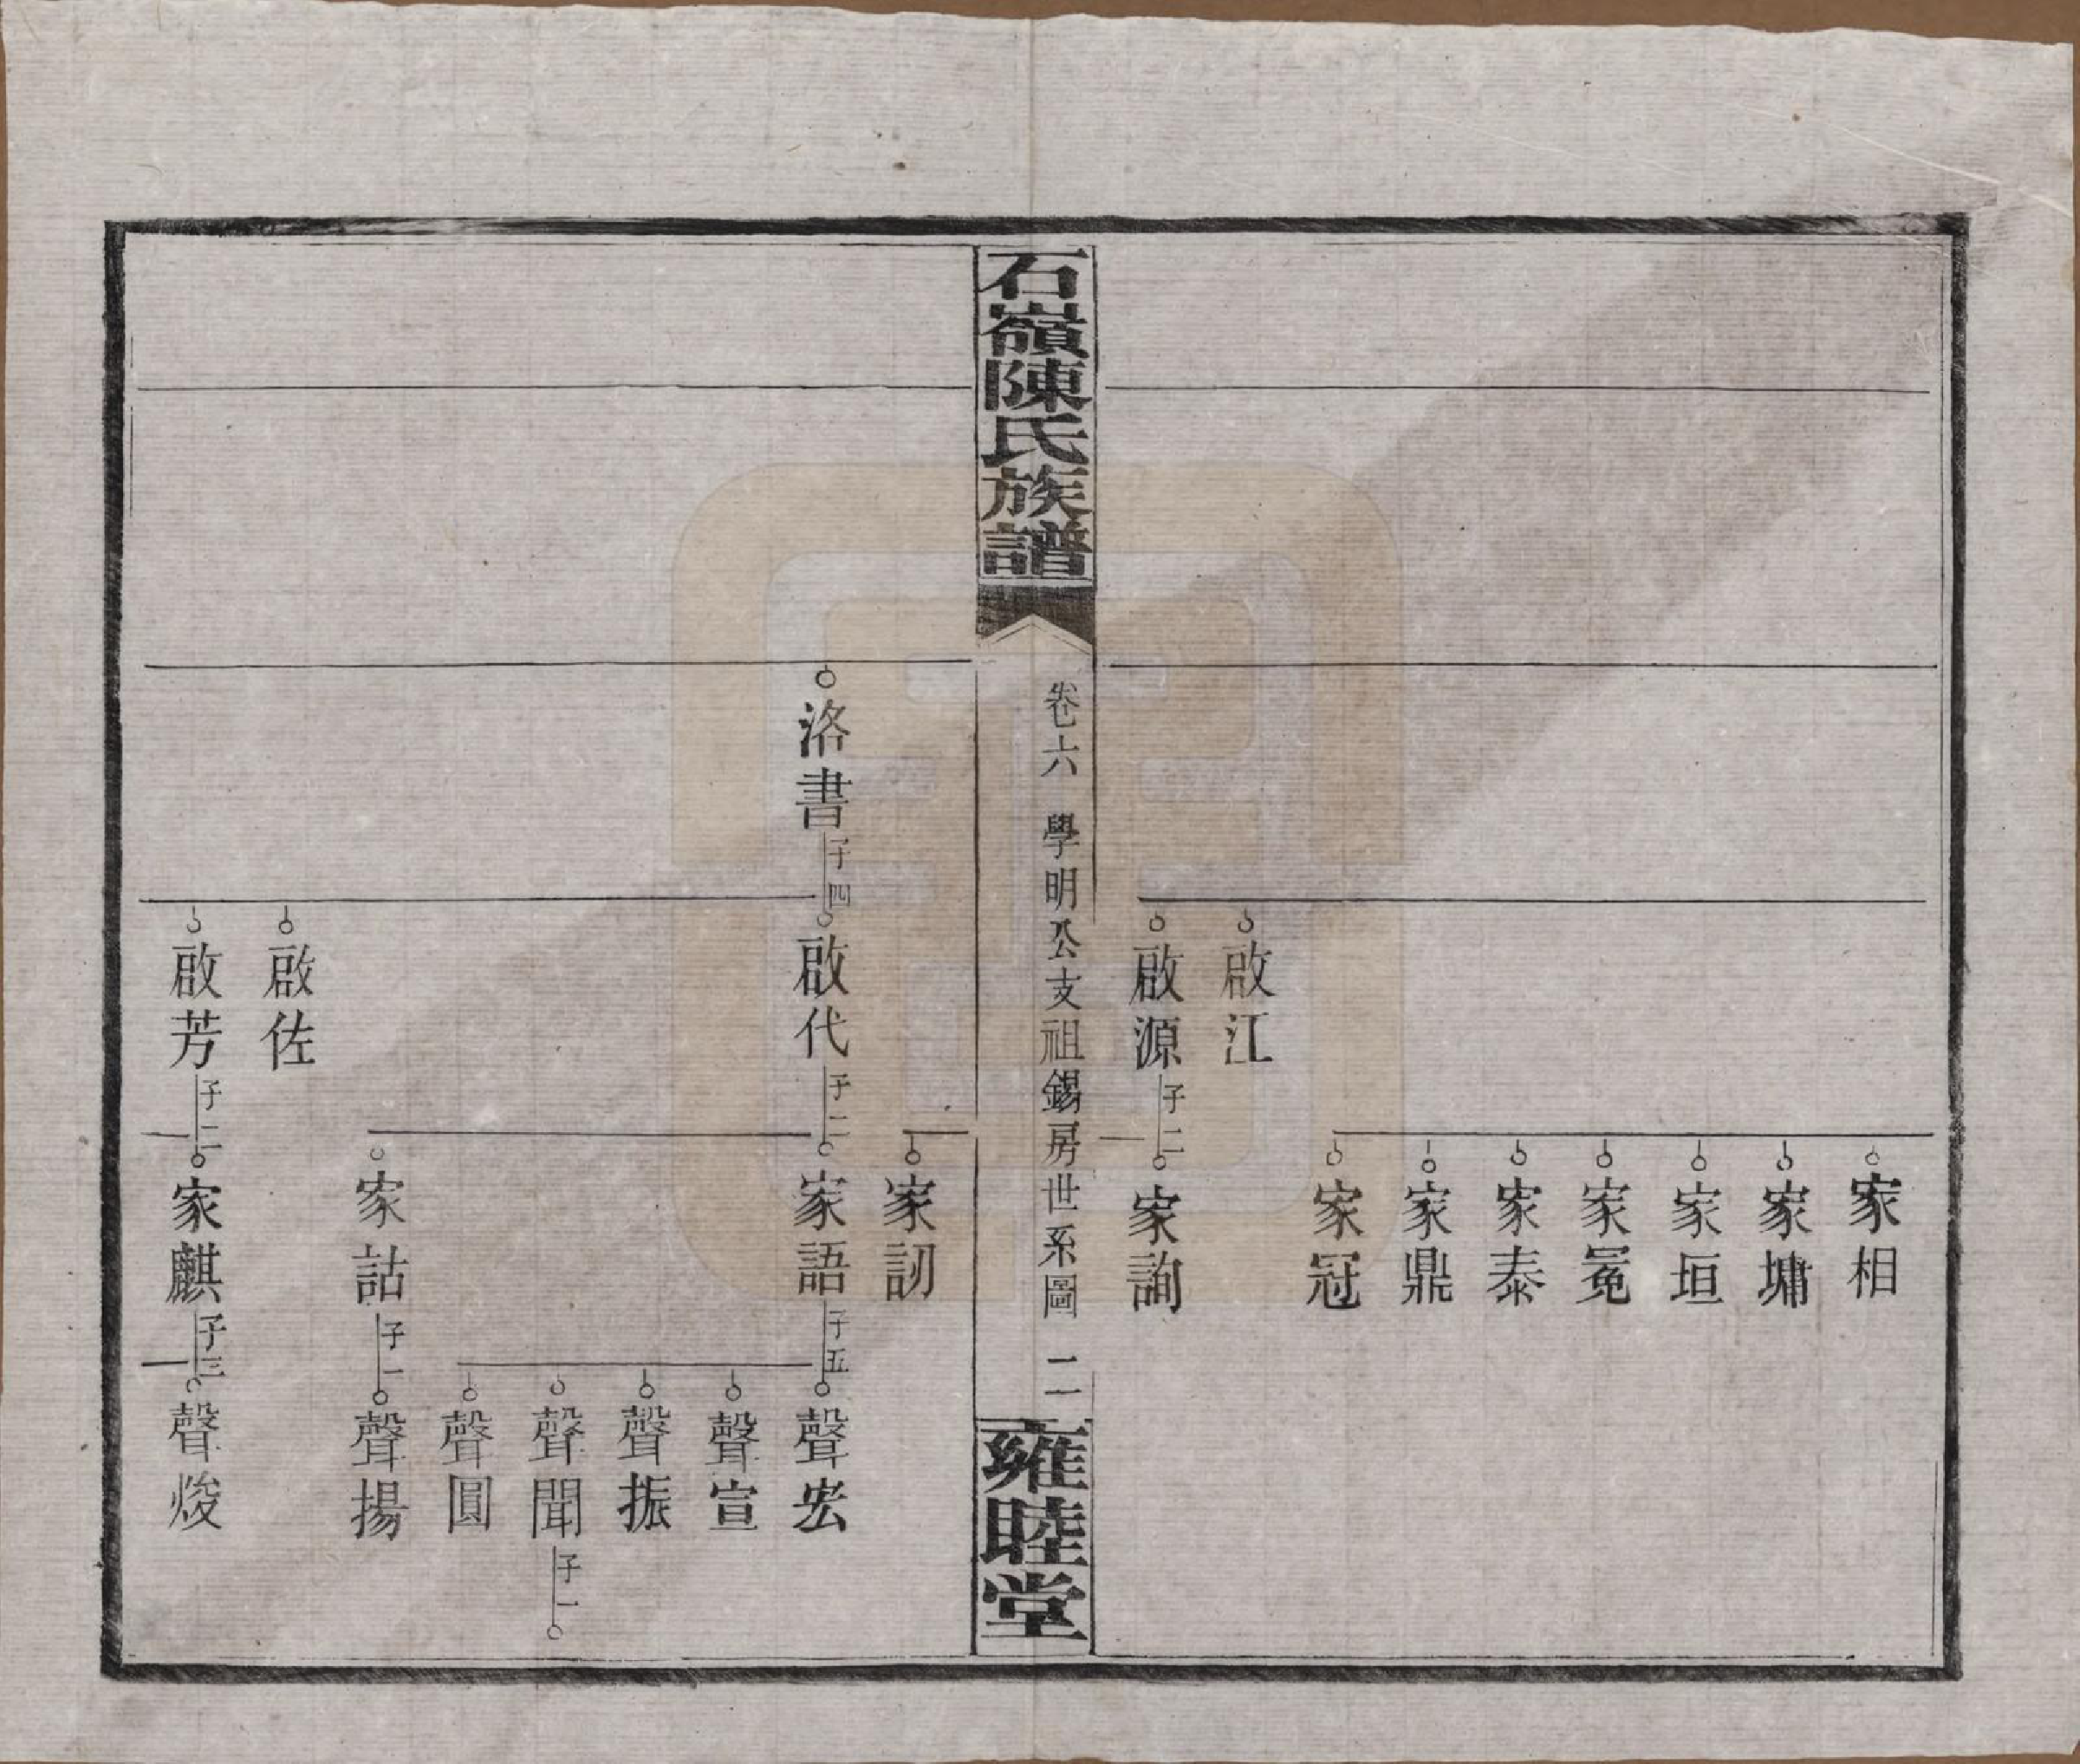 家相
家墉
家垣
家冕
家泰
家鼎
家冠
啟江
啟源子二家詢
石嶺陳氏族譜
卷六 學明公支祖錫房世系圖 二
雍睦堂
家訒
洛書子四啟代子二家語子五聲宏
聲宣
聲振
聲聞子一
聲圓
家詁子一聲揚
啟佐
啟芳子二家麒子三聲焌